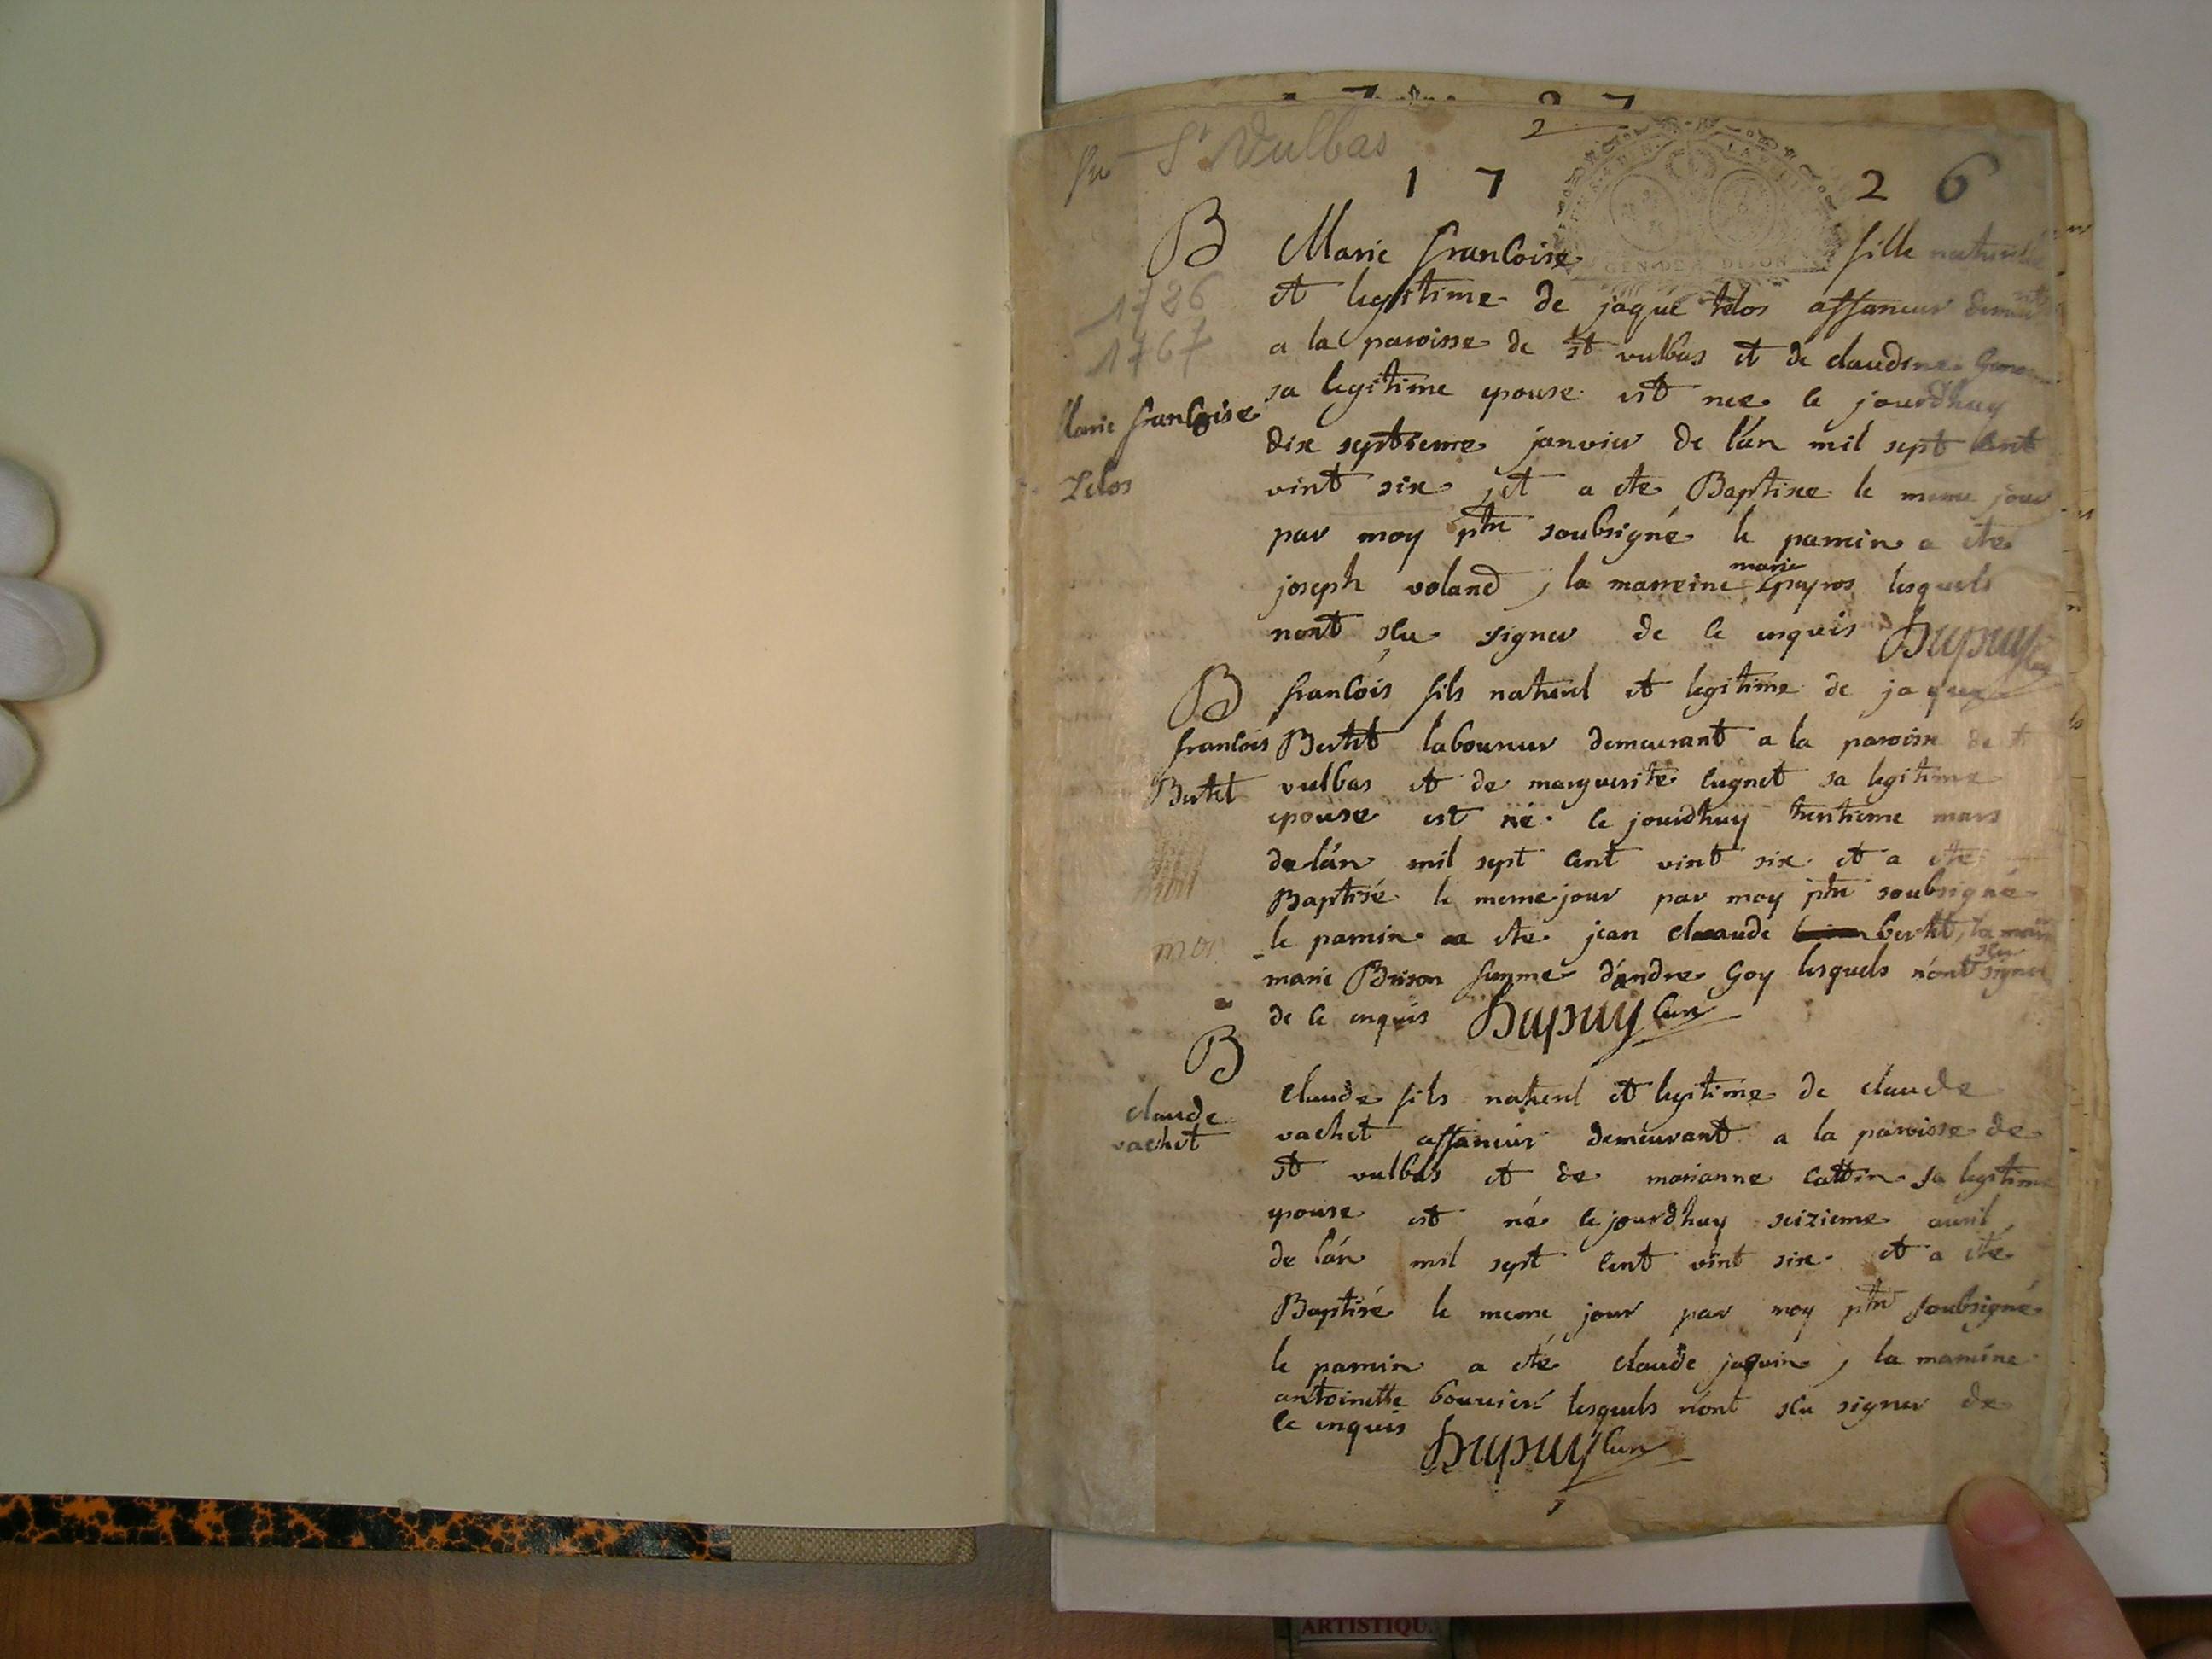 St Vulbas
2
1 7 2 6
GEN DE DIJON
B Marie francoise fille naturelle
1726
1767
et legitime de jaque telos affaneur demt
a la paroisse de st vulbas et de claudine
sa legitime epouse est nee ce jourdhuy
Marie francoise
telos
dix septieme janvier de l'an mil sept cent
vint six et a ete Baptisee le meme jour
par moy ptre soubsigné le parrin a ete
joseph voland, la marreine marie lesquels
nont scu signer de ce enquis Dupuy
B francois fils naturel et legitime de jaque
francois
Bertet
Bertet laboureur demeurant a la paroisse de st
vulbas et de marguerite cugnet sa legitime
epouse est né ce jourdhuy trentieme mars
de l'an mil sept cent vint six et a ete
Baptisé le meme jour par moy ptre soubsigné
le parrin a ete jean claude bertet, la marr
marie Brison femme d'andre Goy lesquels n'ont scu signer
de ce enquis Dupuy cure
B
claude
vachet
claude fils naturel et legitime de claude
vachet affaneur demeurant a la paroisse de
st vulbas et de marianne cattin sa legitime
epouse est né ce jourdhuy seizieme avril
de l'an mil sept cent vint six et a eté
Baptisé le meme jour par moy ptre soubsigné
le parrin a eté claude jaquin, la marreine
antoinette bouvier lesquels n'ont scu signer de
ce enquis
Dupuy cure
ARTISTIQU